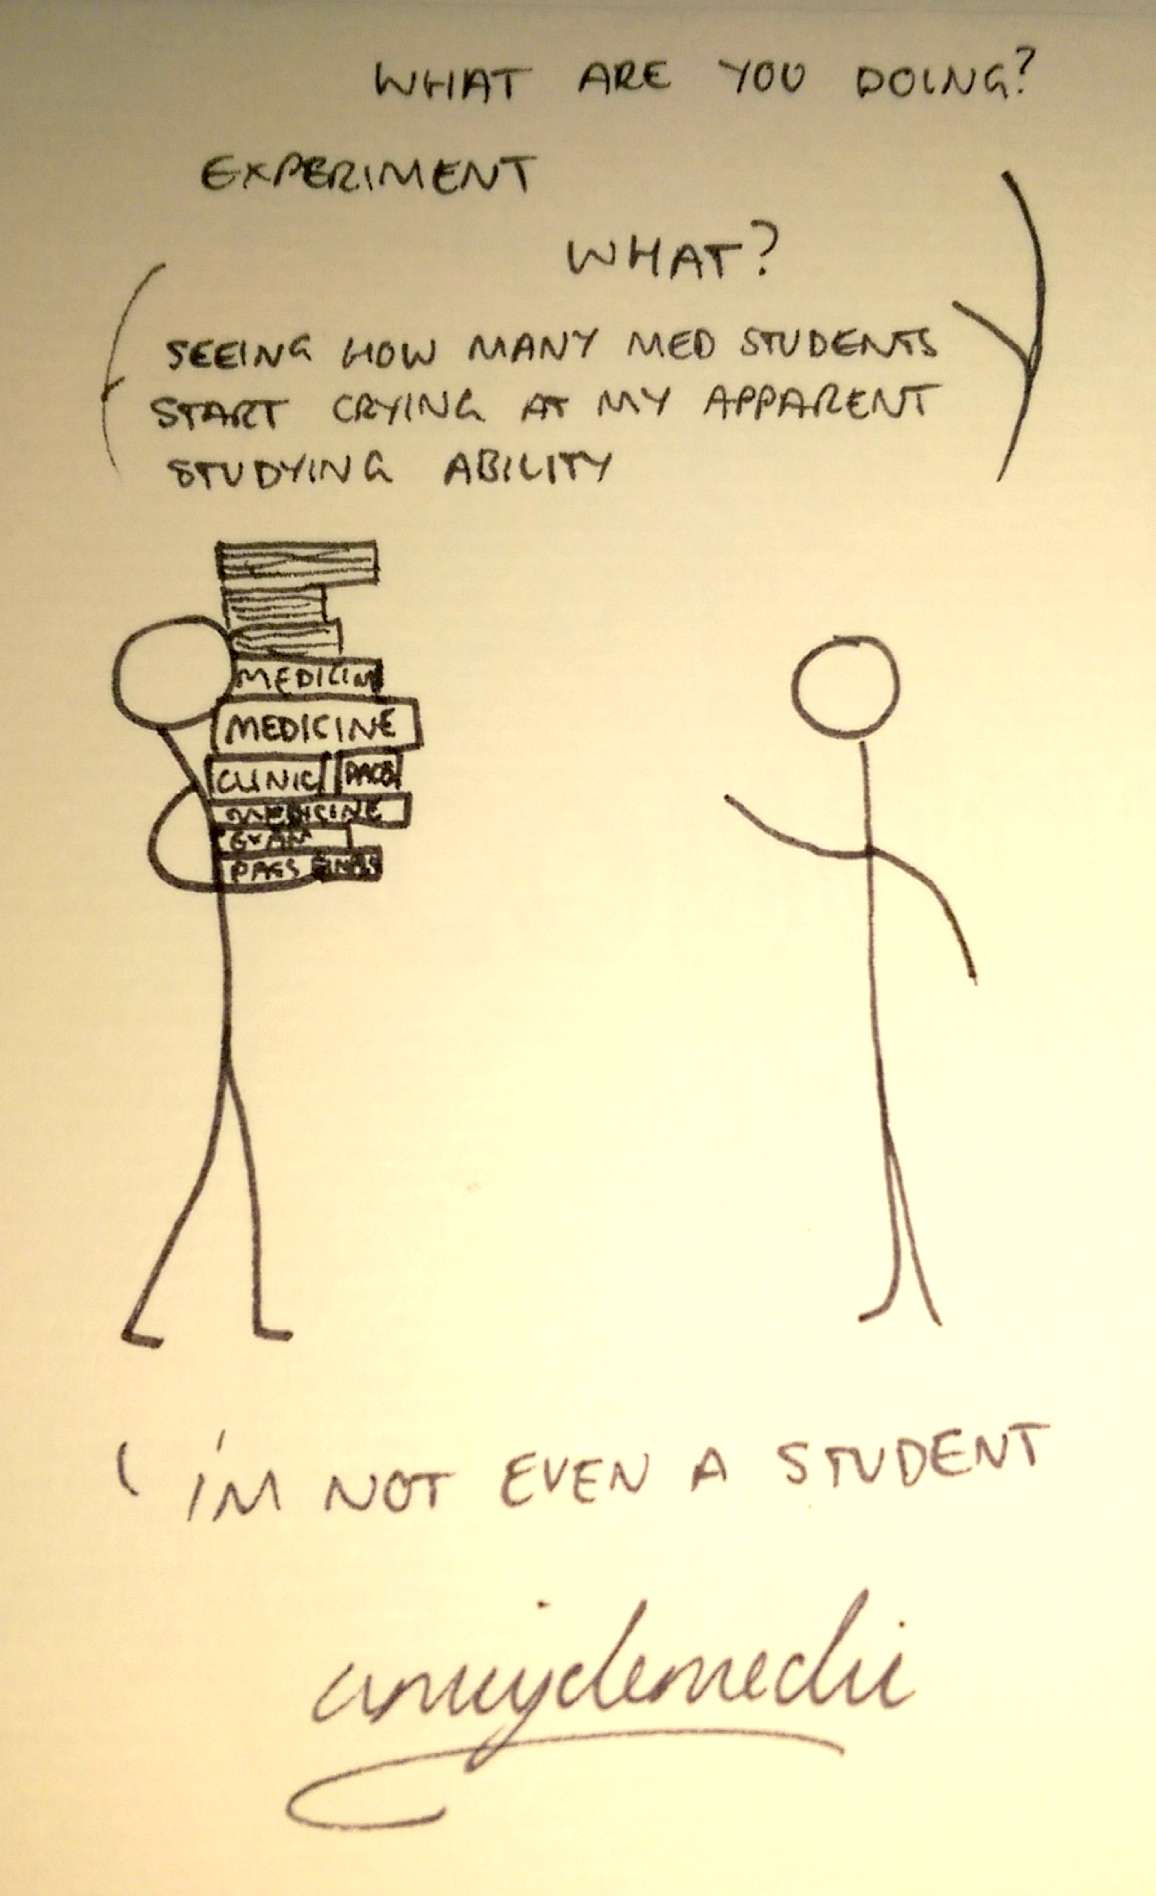 WHAT ARE YOU DOING?
EXPERIMENT
WHAT?
SEEING HOW MANY MED STUDENTS
START CRYING AT MY APPARENT
STUDYING ABILITY
MEDICIN
MEDICINE
CLINIC
MEDICINE
EXAM
PASS
I'M NOT EVEN A STUDENT